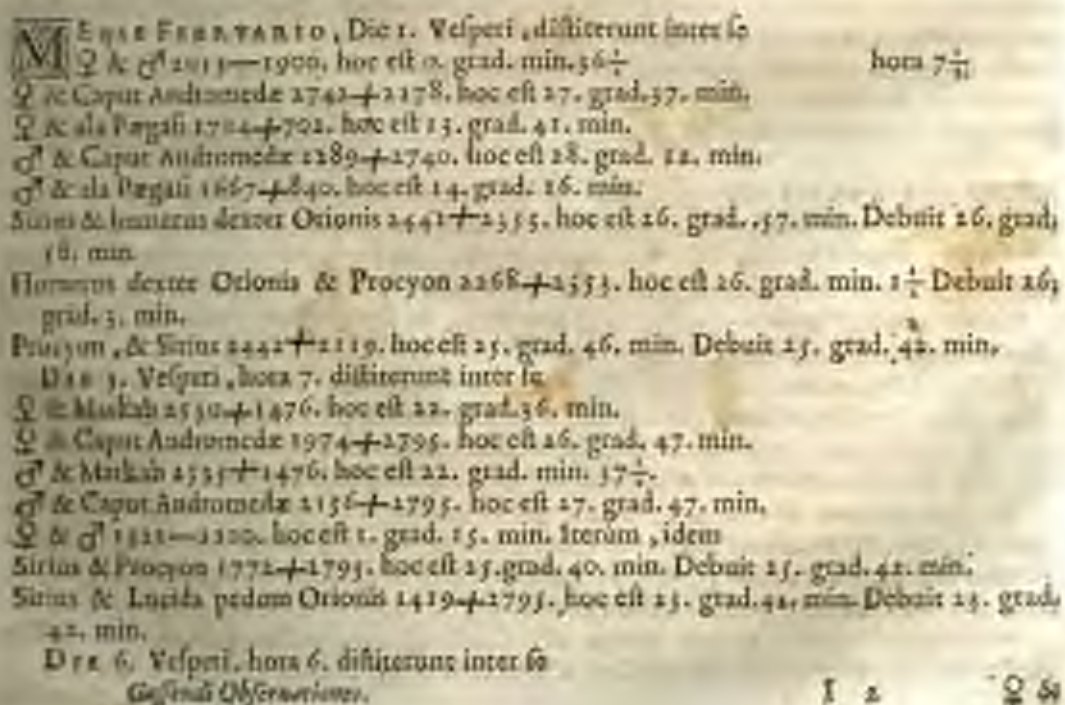 MENSE FEBRVARIO, Die 1. Veſperi, diſtiterunt inter ſe
♀ & ♂ 2013—1900. hoc eſt 0. grad. min. 56½ hora 7
♀ & Caput Andromedæ 2742+2178. hoc eſt 27. grad. 37. min.
♀ & ala Pægaſi 1702. hoc eſt 13. grad. 41. min.
♂ & Caput Andromedæ 2289+2740. hoc eſt 28. grad. 12. min.
♂ & ala Pægaſi 1667+840. hoc eſt 14. grad. 16. min.
Sirius & humerus dexter Orionis 2441+2355. hoc eſt 26. grad. 57. min. Debuit 26. grad.
min.
Humerus dexter Orionis & Procyon 2268+2553. hoc eſt 26. grad. min. 1½ Debuit 26;
grad. 3. min.
Procyon, & Sirius 2442+2119. hoc eſt 25. grad. 46. min. Debuit 25. grad. 42. min.
DIE 3. Veſperi, hora 7. diſtiterunt inter ſe
♀ & Markab 2530+1476. hoc eſt 22. grad. 36. min.
♀ & Caput Andromedæ 1974+2795. hoc eſt 26. grad. 47. min.
♂ & Markab 2535+1476. hoc eſt 22. grad. min. 37½.
♂ & Caput Andromedæ 2156+2795. hoc eſt 27. grad. 47. min.
♀ & ♂ hoc eſt 1. grad. 15. min. Iterum, idem
Sirius & Procyon 1772+2795. hoc eſt 25. grad. 40. min. Debuit 25. grad. 42. min.
Sirius & Lucida pedum Orionis 1419+2795. hoc eſt 23. grad. 42. min. Debuit 23. grad.
42. min.
DIE 6. Veſperi, hora 6. diſtiterunt inter ſe
Gaſſendi Obſervationes. I 2 ♀ &